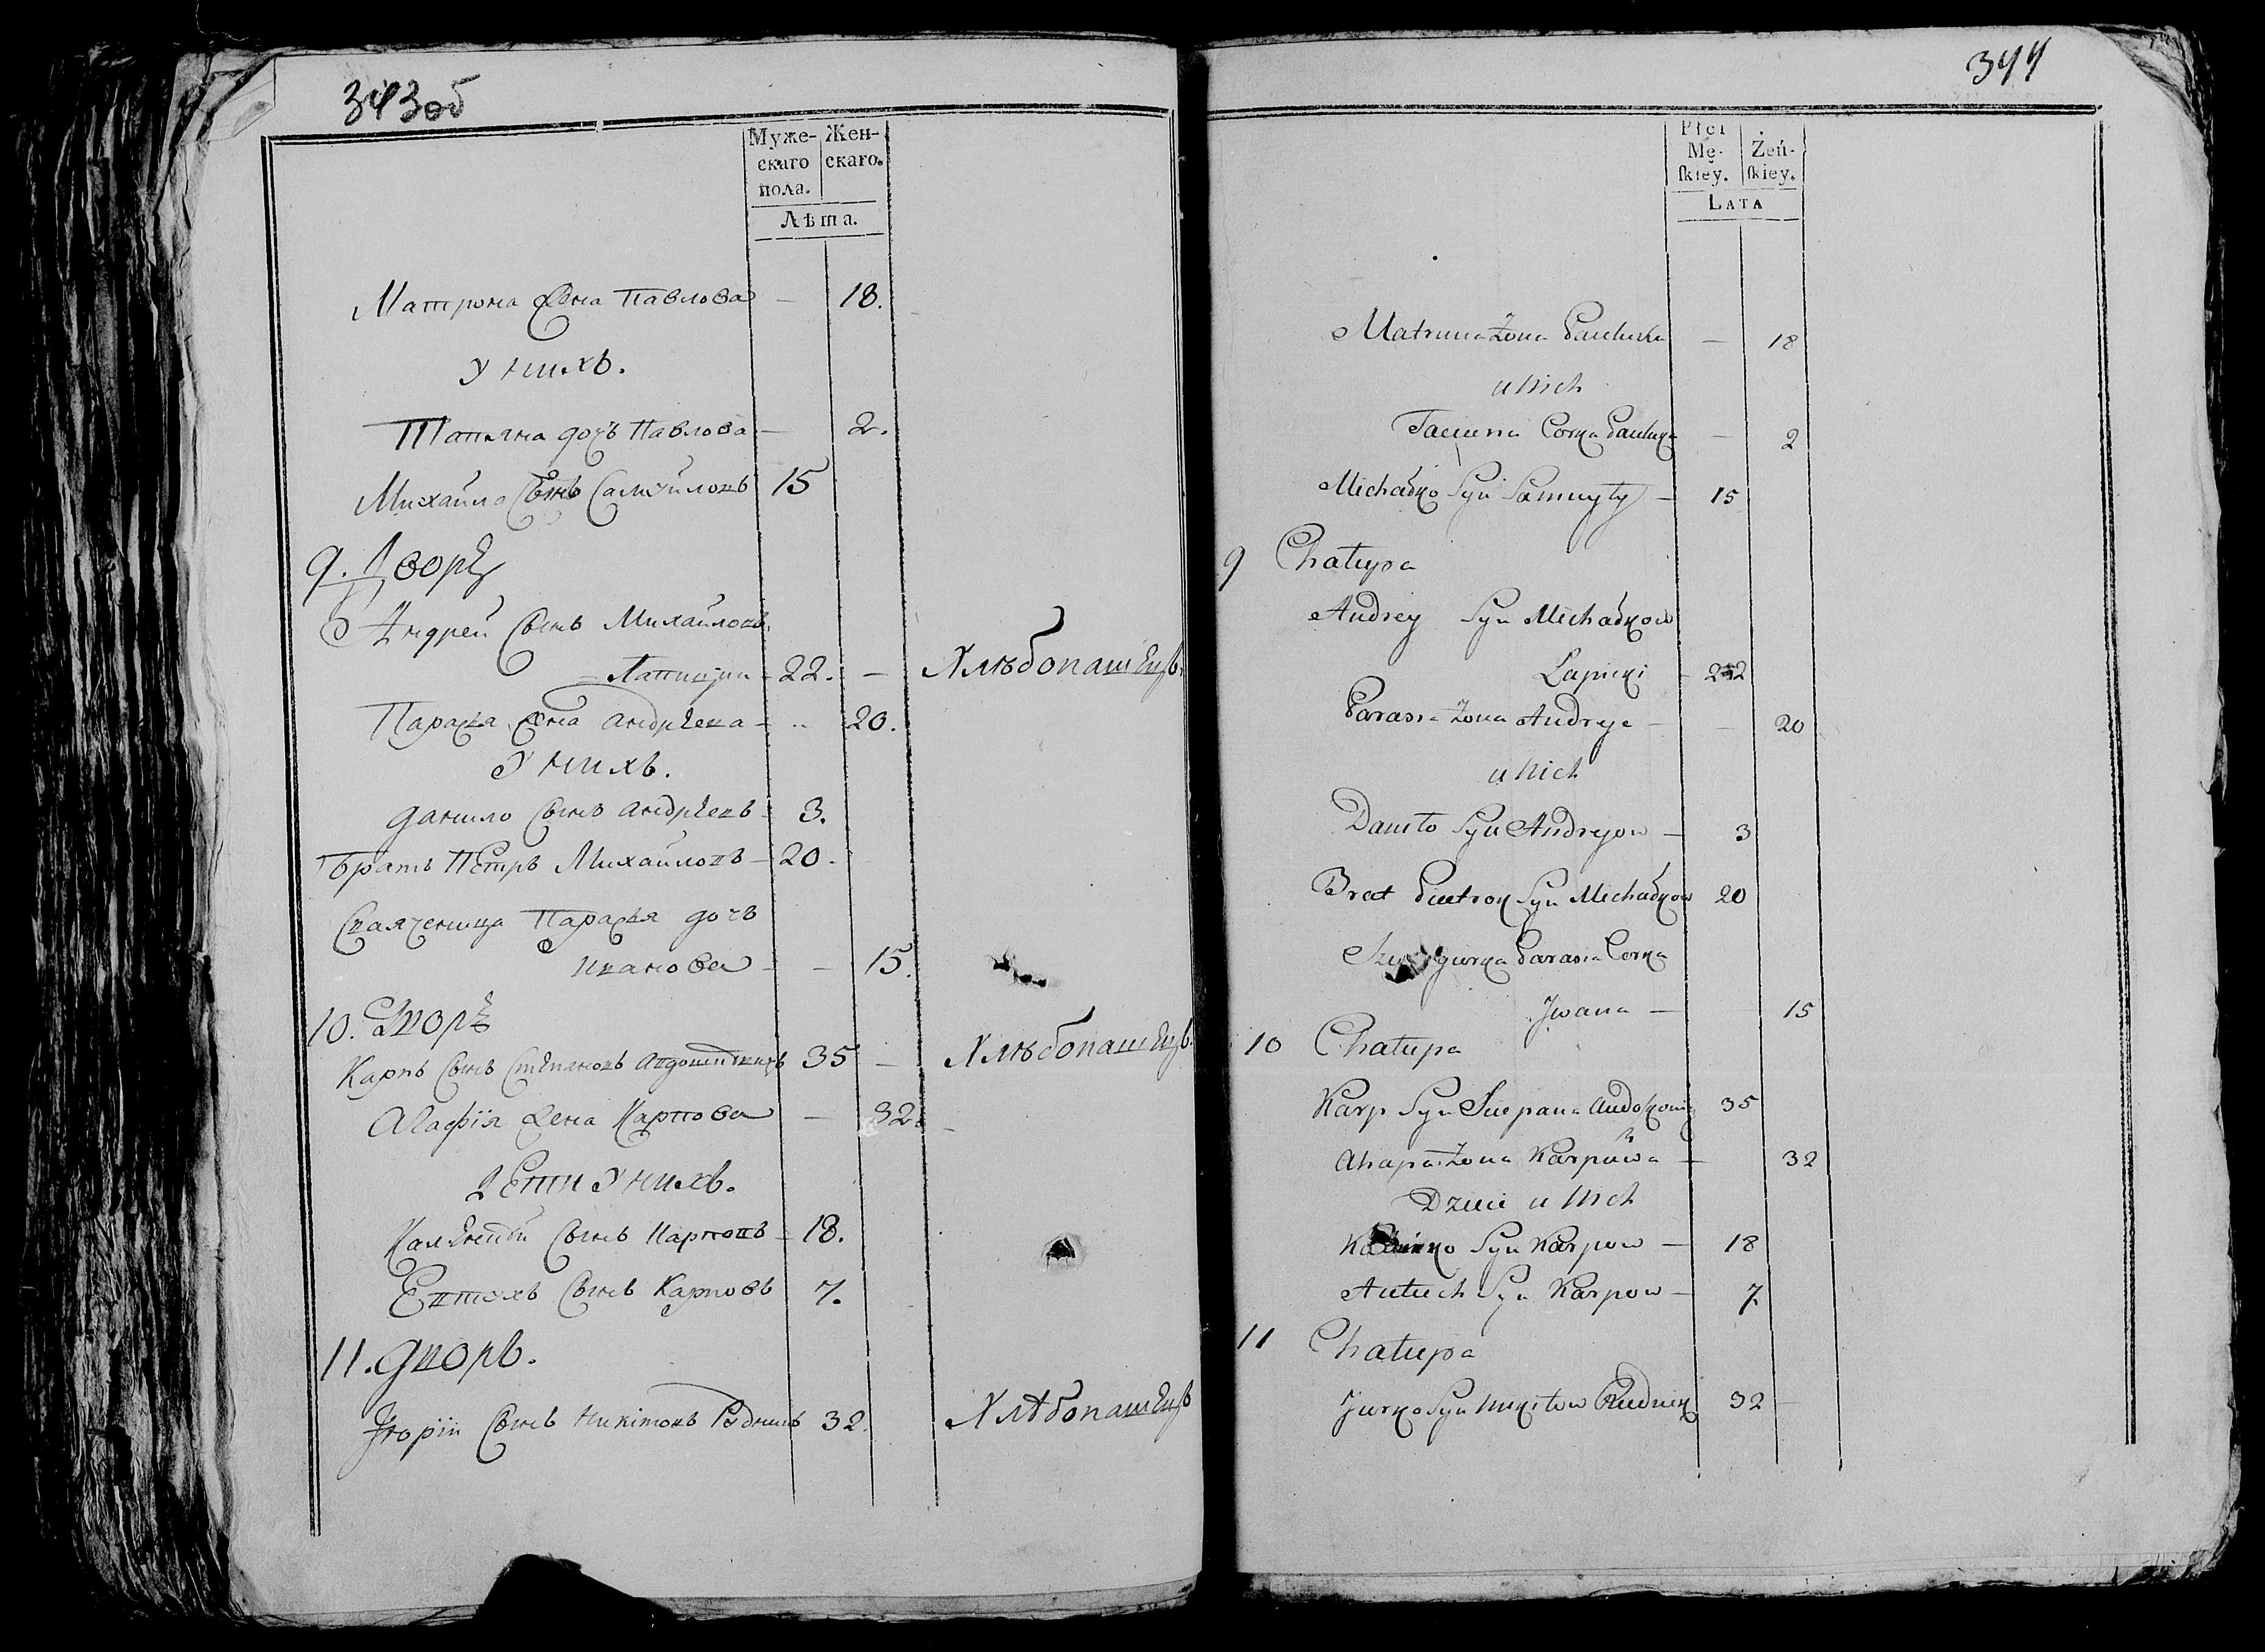 343об
Муже- Жен-
скаго скаго.
пола.
Лѣта.
Матрона жена Павлова — 18.
У нихъ.
Татьяна дочь Павлова — 2.
Михайло сынъ Самуйловъ 15
9. Дворъ
Андрей сынъ Михайловъ
Лапицкий 22. — Хлѣбопашецъ.
Параска жена Андреева — 20.
У нихъ.
Данило сынъ Андреевъ 3.
Братъ Петръ Михайловъ — 20.
Свояченица Параскя дочь
Иванова — — 15.
10. Дворъ
Карпъ сынъ Степановъ 35 — Хлѣбопашецъ.
Агафія жена Карпова — 32.
Дети у нихъ.
сынъ Карповъ 18.
Евтухъ сынъ Карповъ 7.
11. Дворъ.
Юрій сынъ Никитовъ Рудникъ 32. Хлѣбопашецъ
344
Płci
Mę- Żeń-
ſkiey. ſkiey.
Lata
Matruna Żona Pauluka — 18
u nich
Taciana Corka Pauluka — 2
Michałko Syn Samuyły — 15
9 Chałupa
Andrey Syn Michałkow
Łapicki — 22
Parasia Żona Andreja — — 20
u nich
Daniło Syn Andrejow — 3
Brat Piotrok Syn Michałkow 20
Parasia Corka
Jwana — 15
10 Chałupa
Karp Syn Sciepana 35
Ahapa Żona Karpowa — 32
Dzieci u nich
Syn Karpow — 18
Autuch Syn Karpow — 7
11 Chałupa
Jurko Syn Mikitow Rudnik 32 —